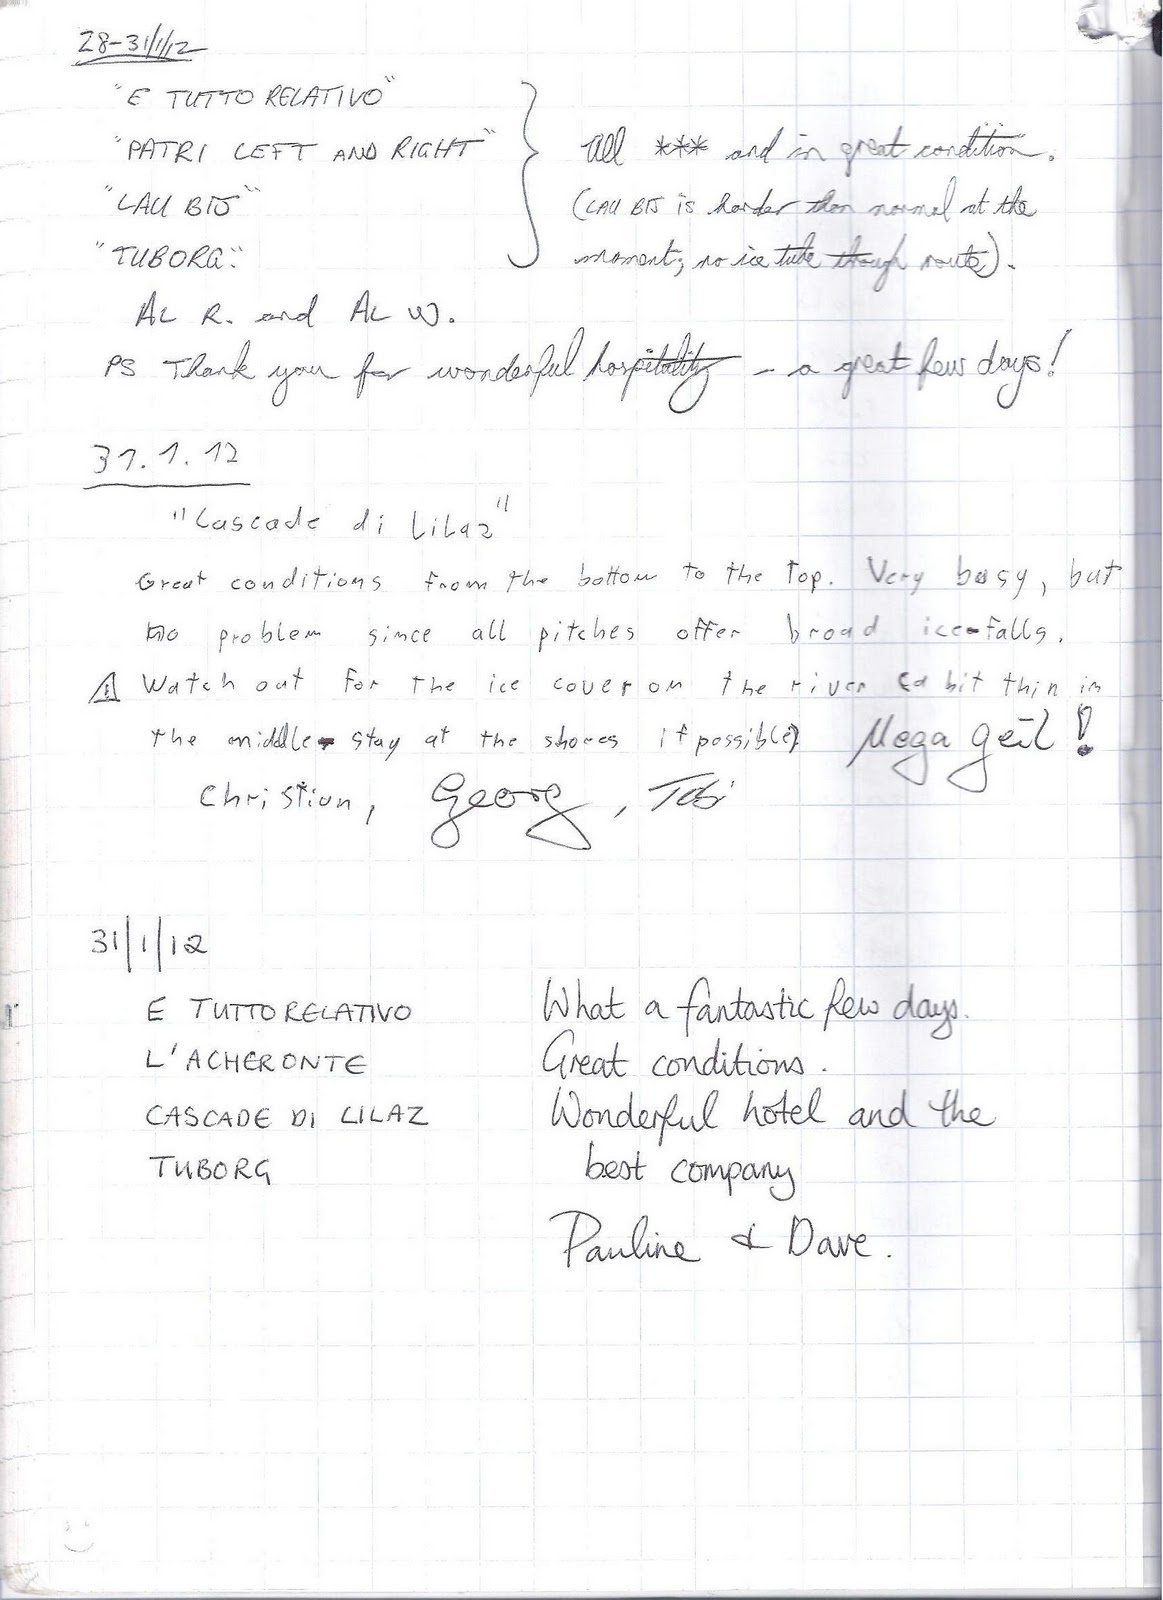 28-31/1/12
"E TUTTO RELATIVO"
"PATRI LEFT AND RIGHT"
"LAU BIJ"
"TUBORG."
All *** and in great condition.
(LAU BIJ is harder than normal at the
moment; no ice tube though route).
AL R. and AL W.
PS Thank you for wonderful hospitality - a great few days!
31.1.12
"Cascade di Lilaz"
Great conditions from the bottom to the top. Very busy, but
no problem since all pitches offer broad ice-falls.
⚠ Watch out for the ice cover on the river (a bit thin in
the middle - stay at the shores if possible) Mega geil!
Christian, Georg, Tobi
31/1/12
E TUTTO RELATIVO
L'ACHERONTE
CASCADE DI LILAZ
TUBORG
What a fantastic few days.
Great conditions.
Wonderful hotel and the
best company
Pauline & Dave.